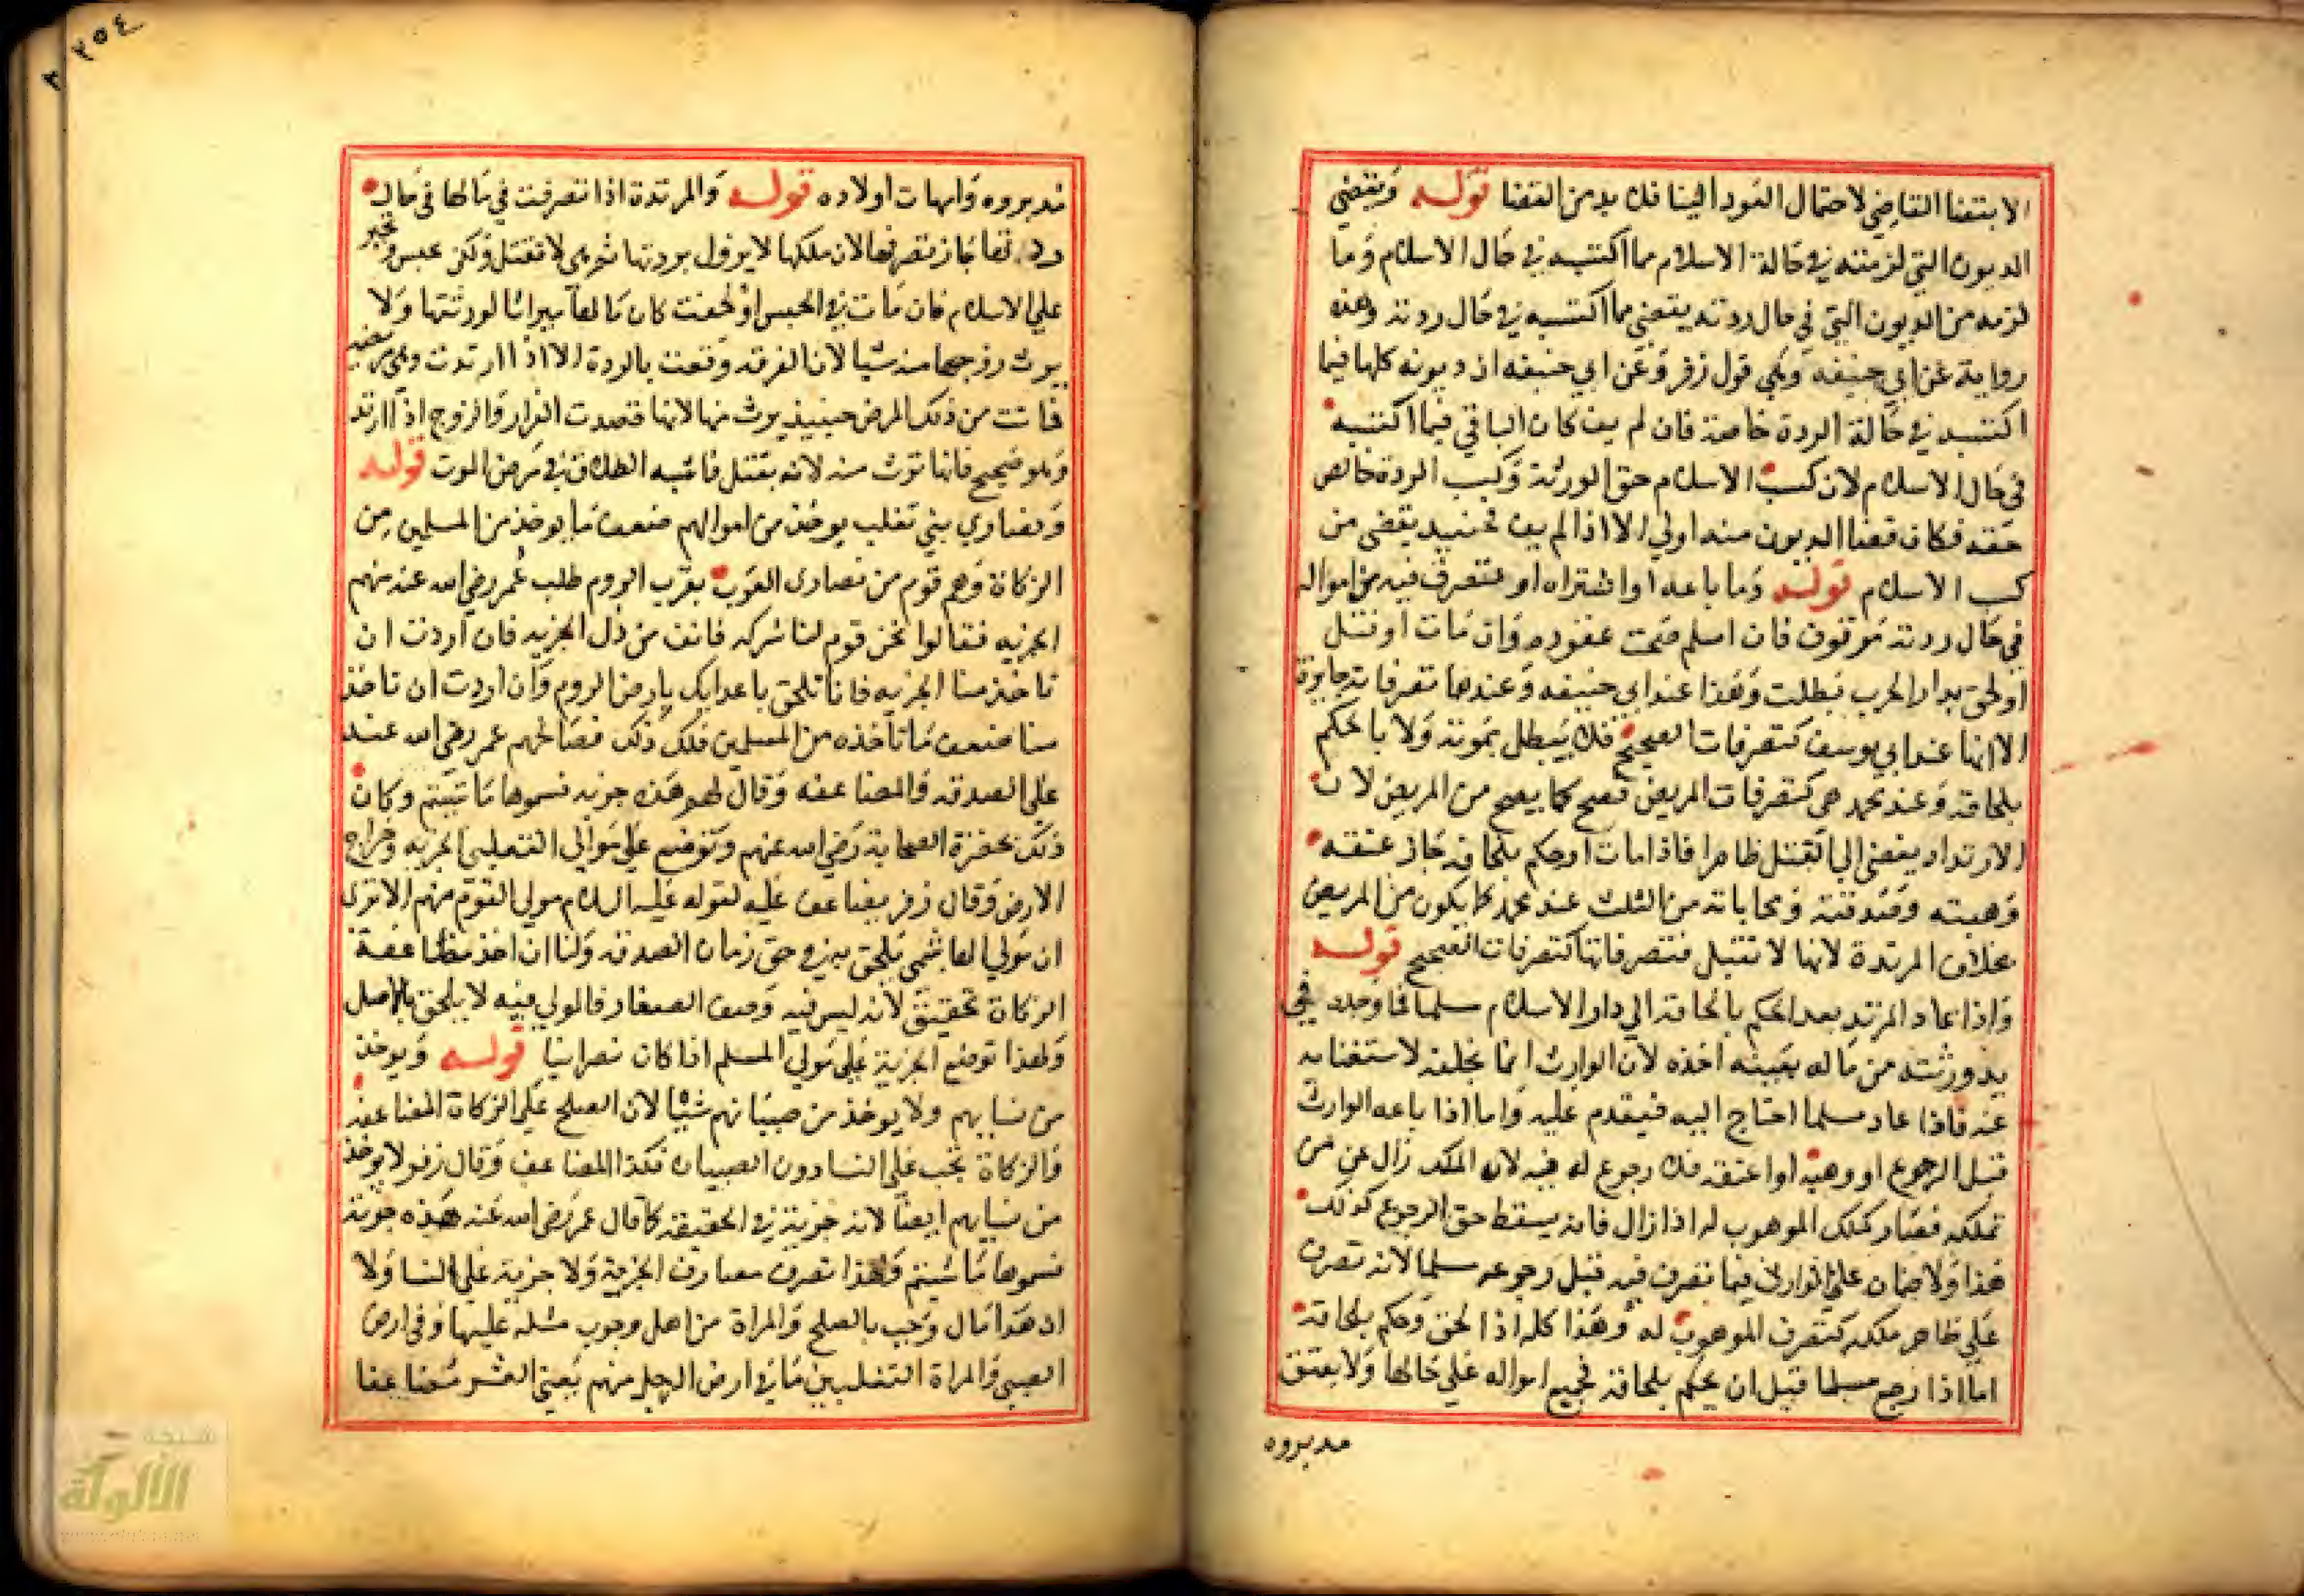 الا بقضا القاضي لاحتمال العود الينا فلا بد من القضا قوله ويقضي
الديون التي لزمته في حالة الاسلام مما اكتسبه في حال الاسلام وما
لزمه من الديون التي في حال ردته يقضي مما اكتسبه في حال ردته وهذه
رواية عن ابي حنيفه وهي قول زفر وعن ابي حنيفه ان ديونه كلها فيما
اكتسبه في حالة الردة خاصة فان لم يف كان الباقي فيما اكتسبه
في حال الاسلام لان كسب الاسلام حق الورثة وكسب الردة خالص
حقه فكان قضا الديون منه اولي الا اذا لم يف فحينيذ يقضي من
كسب الاسلام قوله وما باعه او اشتراه او تصرف فيه من امواله
في حال ردته موقوف فان اسلم صحت عقوده وان مات او قتل
او لحق بدار الحرب بطلت وهذا عند ابي حنيفه وعندهما تصرفاته جايزة
الا انها عند ابي يوسف كتصرفات الصحيح فلا يبطل بموته ولا بالحكم
بلحاقه وعند محمد هي كتصرفات المريض فصح كما يصح من المريض لان
الارتداد يفضي الي القتل ظاهرا فاذا مات او حكم بلحاقه جاز عتقه
وهبته وصدقته ومحاباته من الثلث عند محمد كما يكون من المريض
بخلاف المرتدة لانها لا تقتل فتصرفاتها كتصرفات الصحيح قوله
واذا عاد المرتد بعد الحكم بالحاقه الي دار الاسلام مسلما فما وجده في
يد ورثته من ماله بعينه اخذه لان الوارث انما يخلفه لاستغنايه
عنه فاذا عاد مسلما احتاج اليه فيقدم عليه واما اذا باعه الوارث
قبل الرجوع او وهبه او اعتقه فلا رجوع له فيه لان الملك زال عن من
تملكه فصار كملك الموهوب له اذا زال فانه يسقط حق الرجوع كذلك
هذا ولا ضمان علي الوارث فيما تصرف فيه قبل رجوعه مسلما لانه تصرف
علي ظاهر ملكه كتصرف الموهوب له وهذا كله اذا لحق وحكم بلحاقه
اما اذا رجع مسلما قبل ان يحكم بلحاقه فجميع امواله علي حالها ولا يعتق
مدبروه
٢٥٤
مدبروه وامهات اولاده قوله والمرتدة اذا تصرفت في مالها في حال
ردتها جاز تصرفها لان ملكها لا يزول بردتها ثم هي لا تقتل ولكن تحبس وتجبر
علي الاسلام فان ماتت في الحبس او لحقت كان مالها ميراثا لورثتها ولا
يرث زوجها منه شيا لان الفرقه وقعت بالردة الا اذا ارتدت وهي مريضه
فماتت من ذلك المرض حينيذ يرث منها لانها قصدت الفرار والزوج اذا ارتد
وهو صحيح فانها ترث منه لانه يقتل فاشبه الطلاق في مرض الموت قوله
ونصاري بني تغلب يوخذ من اموالهم ضعف ما يوخذ من المسلمين من
الزكاة وهم قوم من نصاري العرب بقرب الروم طلب عمر رضي الله عنه منهم
الجزيه فقالوا نحن قوم لنا شركه فانف من ذل الجزيه فان اردت ان
تاخذ منا الجزيه فانا نلحق باعدايك بارض الروم وان اردت ان تاخذ
منا ضعف ما تاخذه من المسلمين فلك ذلك فصالحهم عمر رضي الله عنه
علي الصدقه المضاعفه وقال لهم هذه جزيه فسموها ما شيتم وكان
ذلك بحضرة الصحابة رضي الله عنهم وتوضع علي موالي التغلبي الجزيه وخراج
الارض وقال زفر يضاعف عليه لقوله عليه السلام مولي القوم منهم الا تري
ان مولي الهاشمي يلحق به في حق زمان الصدقه ولنا ان اخذ مضاعفة
الزكاة تحقيق لانه ليس فيه وصف الصغار فالمولي فيه لا يلحق بالاصل
ولهذا توضع الجزية علي مولي المسلم اذا كان نصرانيا قوله ويوخذ
من نسايهم ولا يوخذ من صبيانهم شيا لان الصلح علي الزكاة المضاعفه
والزكاة تجب علي النسا دون الصبيان فكذا المضاعف وقال زفر لا يوخذ
من نسايهم ايضا لانه جزية في الحقيقه كما قال عمر رضي الله عنه هذه جزية
فسموها ما شيتم ولهذا تصرف مصارف الجزية ولا جزية علي النسا ولنا
ان هذا مال وجب بالصلح والمراة من اهل وجوب مثله عليها وفي ارض
الصبي والمراة التغلبيين ما في ارض الرجل منهم يعني العشر مضاعفا